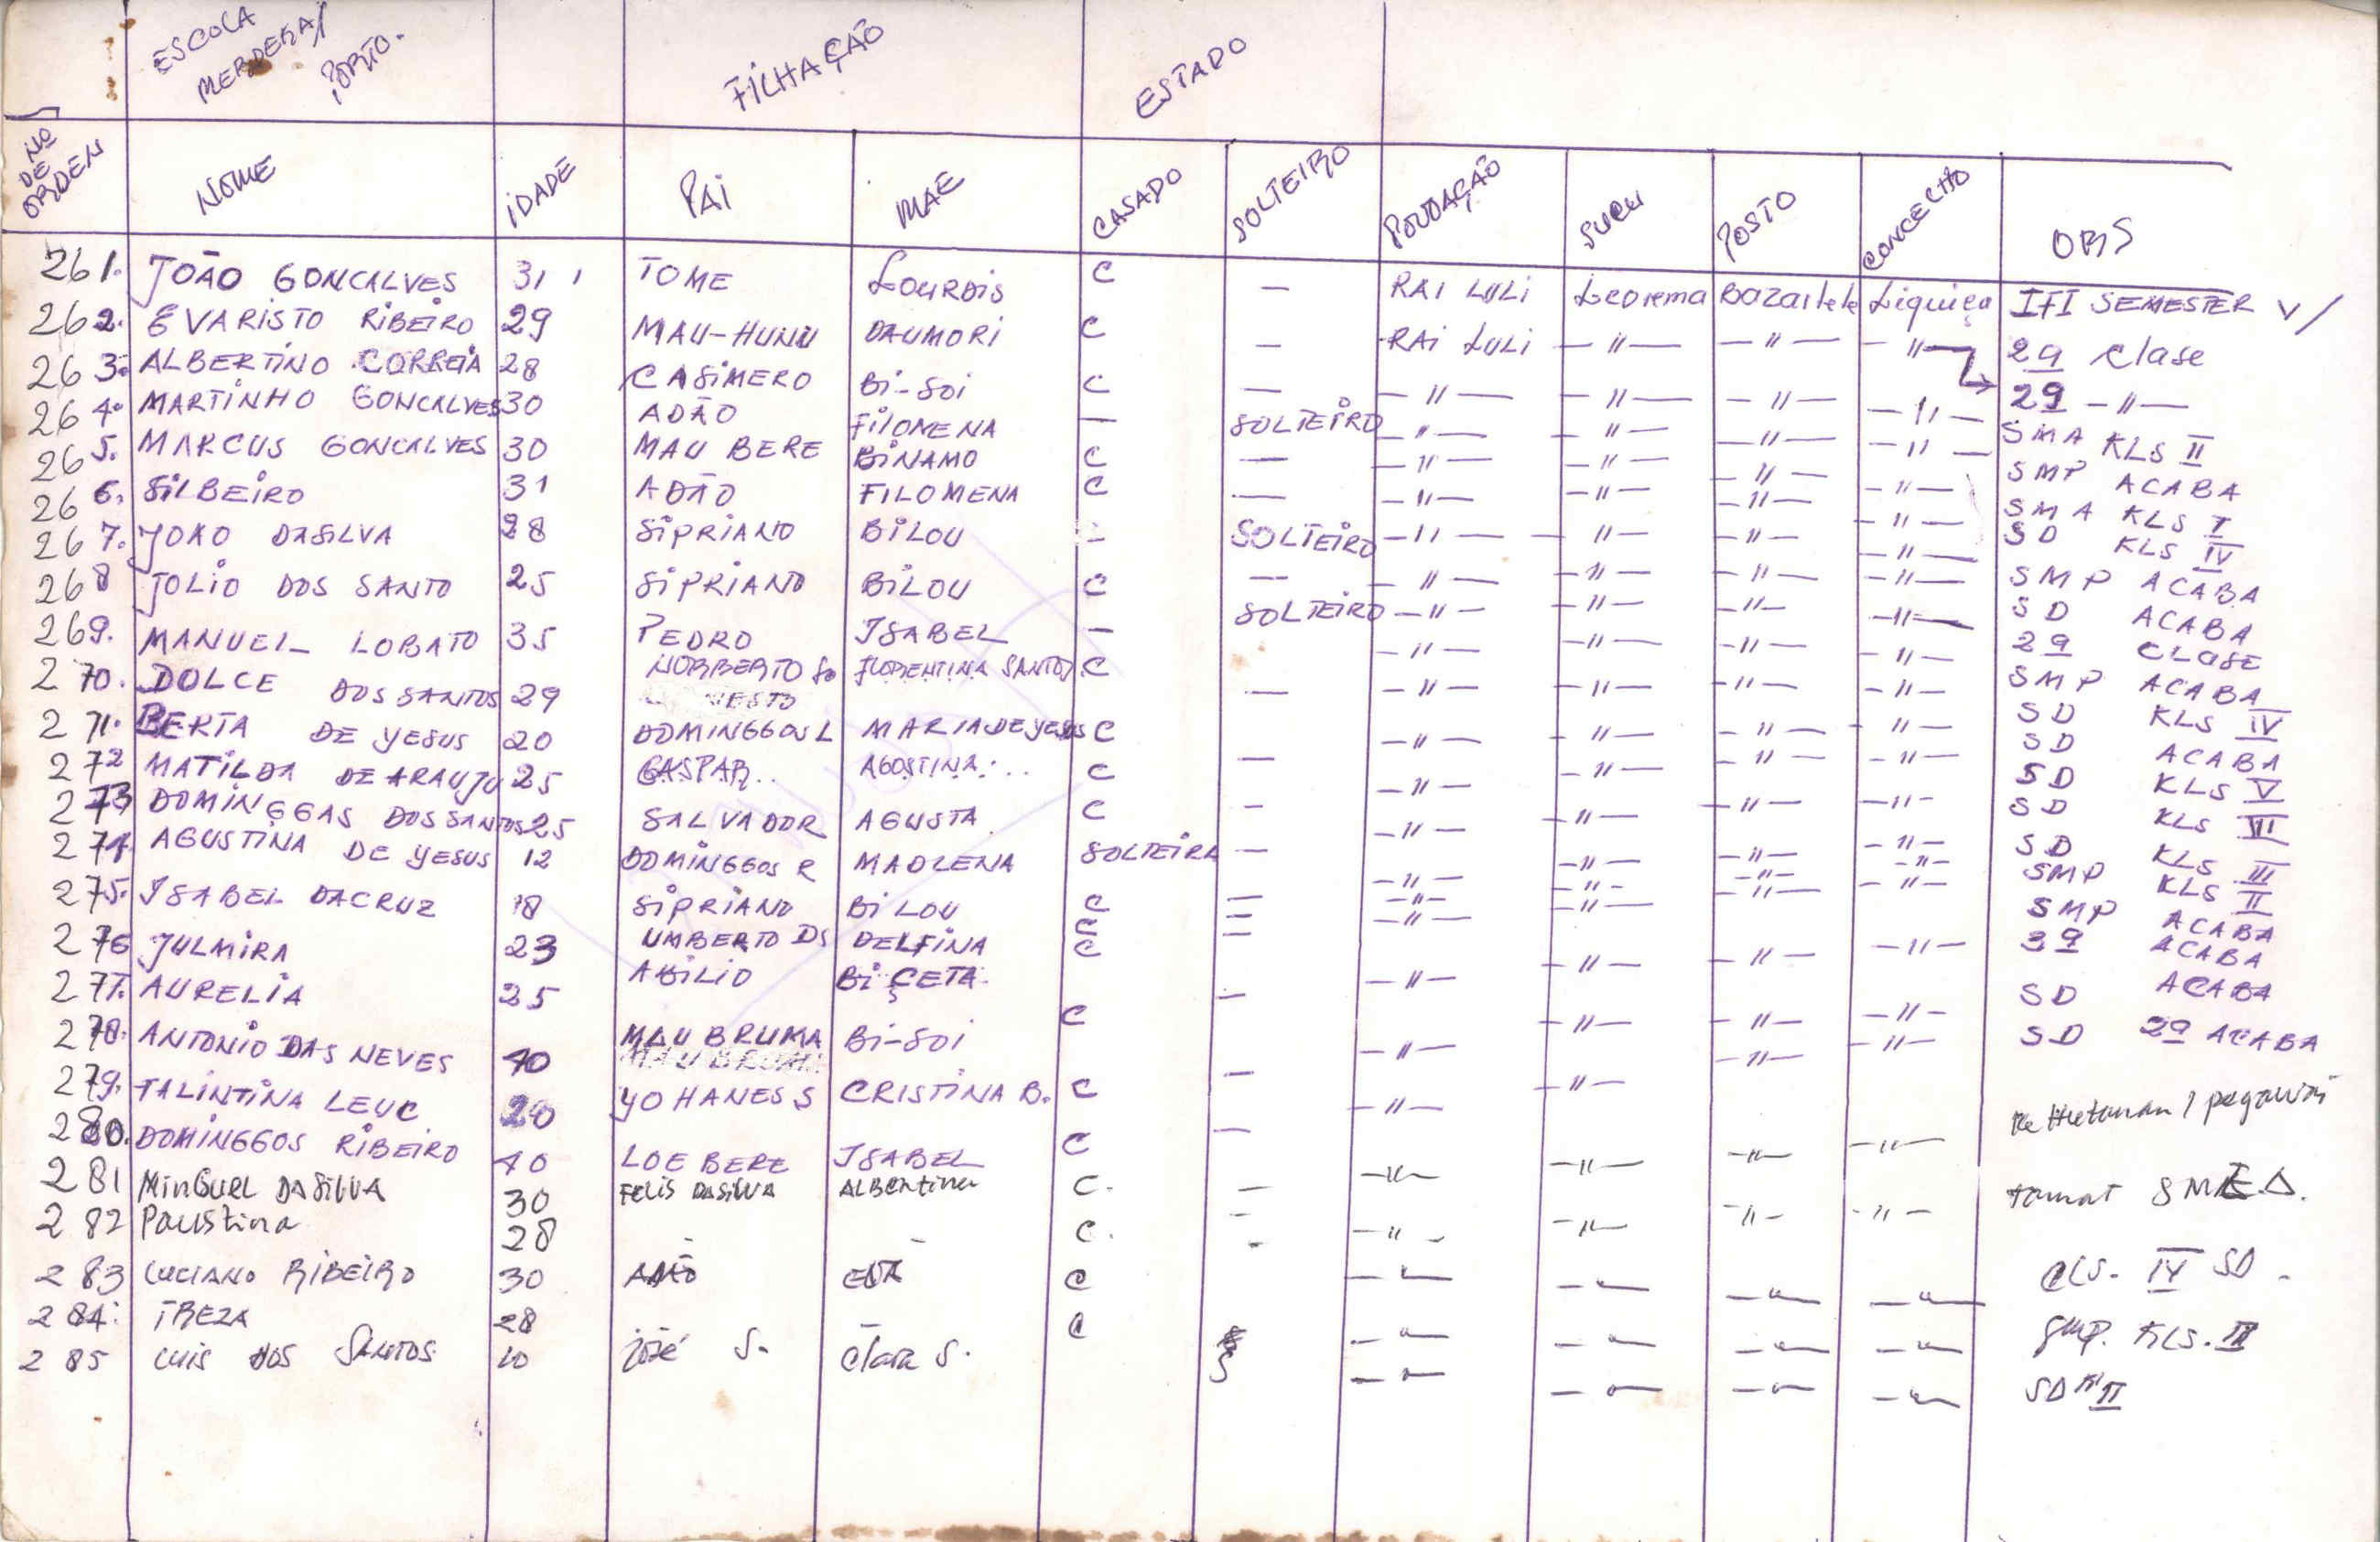 ESCOLA
MERDEKA/
PORTO.
FILHAÇÃO
ESTADO
Nº DE ORDEN NOME IDADE PAI MAE CASADO SOLTEIRO POVOAÇÃO SUCU POSTO CONCELHO OBS
261. JOÃO GONCALVES 31 TOME LOURDIS C — RAI LULI Leorema Bazartete Liquiça III SEMESTER V/
262. EVARISTO RIBEIRO 29 MAU-HUNU DAUMORI C — RAI LULI —"— —"— —"— 2ª Clase
263. ALBERTINO CORREIA 28 CASIMERO Bi-Soi C — —"— —"— —"— 2ª —"—
264. MARTINHO GONCALVES 30 ADÃO FILOMENA — SOLTEIRO —"— —"— —"— —"— SMA KLS II
265. MARCUS GONCALVES 30 MAU BERE BINAMO C — —"— —"— —"— —"— SMP ACABA
266. SILBEIRO 31 ADÃO FILOMENA C — —"— —"— —"— —"— SMA KLS I
267. JOAO DASILVA 28 SIPRIANO BILOU — SOLTEIRO —"— —"— —"— —"— SD KLS IV
268 JOLIO DOS SANTO 25 SIPRIANO BILOU C — —"— —"— —"— —"— SMP ACABA
269. MANUEL LOBATO 35 PEDRO ISABEL — SOLTEIRO —"— —"— —"— —"— SD ACABA
270. DOLCE DOS SANTOS 29 NORBERTO So FLORENTINA SANTOS C — —"— —"— —"— —"— 2ª CLASE
271. BERTA DE YESUS 20 DOMINGGOS L MARIA DE YESUS C —"— —"— —"— —"— SMP ACABA
272 MATILDA DE ARAUJU 25 GASPAR.. AGOSTINA... C — —"— —"— —"— —"— SD KLS IV
273 DOMINGGAS DOS SANTOS 25 SALVADOR AGUSTA C — —"— —"— —"— —"— SD ACABA
274. AGUSTINA DE YESUS 12 DOMINGGOS R MADLENA SOLTEIRA — —"— —"— —"— —"— SD KLS V
275. ISABEL DACRUZ 18 SIPRIANO BILOU C — —"— —"— —"— —"— SD KLS VII
276 JULMIRA 23 UMBERTO DS DELFINA C — —"— —"— —"— —"— SD KLS III
277. AURELIA 25 ABILIO BIÇETA C — —"— —"— —"— —"— SMP KLS II
278. ANTONIO DAS NEVES 40 MAU BRUMA Bi-Soi C — —"— —"— —"— —"— SMP ACABA
279. TALINTINA LEUC 20 YOHANES S CRISTINA B. C — —"— —"— —"— —"— 3ª ACABA
280. DOMINGGOS RIBEIRO 40 LOE BERE ISABEL C — —"— —"— —"— —"— SD ACABA
SD 2ª ACABA
281 MinGuel DA SILVA 30 FELIS DASILVA ALBentina C. — —"— —"— —"— —"— pegawai
282 Paustina 28 - - C. - —"— —"— —"— —"— tamat SMEA.
283 LUCIANO RIBEIRO 30 ADÃO C - —"— —"— —"— —"— CLS. IV SD.
284. TREZA 28 C —"— —"— —"— —"— SMP. KLS. II
285 LUIS DOS SANTOS 10 José S. Clara S. S —"— —"— —"— —"— SD K II